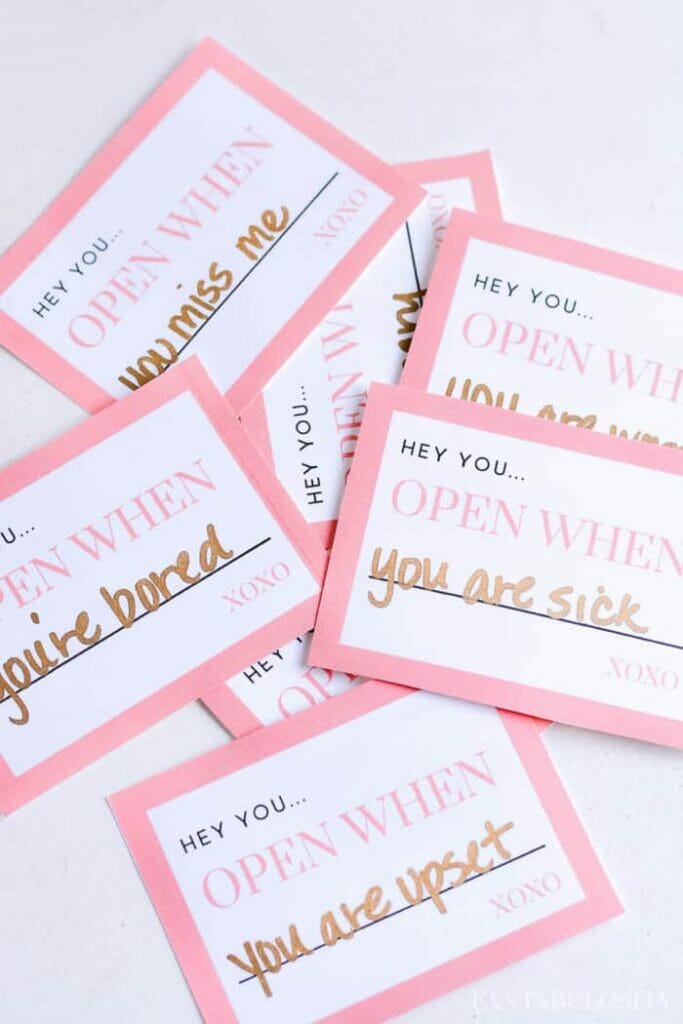 HEY YOU...
OPEN WHEN
you miss me
XOXO
XOXO
HEY YOU...
HEY YOU...
OPEN WHEN
you are
HEY YOU...
OPEN WHEN
you are sick
XOXO
OPEN WHEN
you're bored
XOXO
HEY
HEY YOU...
OPEN WHEN
you are upset
XOXO
FANTABULOSITY